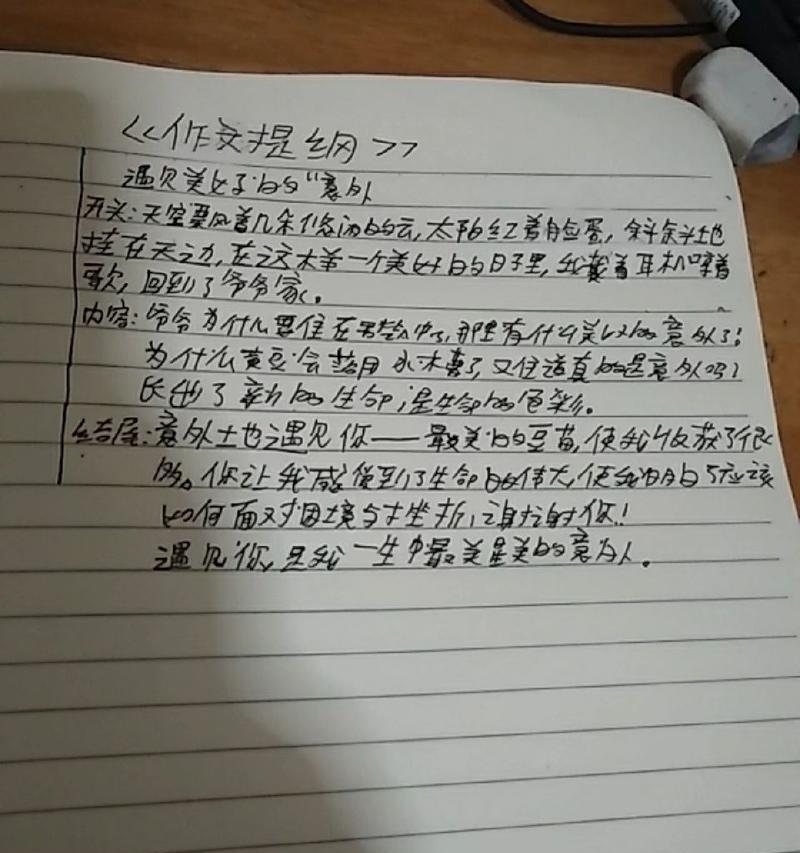 《作文提纲》
遇见美好的"意外
开头:天空飘着几朵悠闲的云,太阳红着脸蛋,斜斜地
挂在天边,在这样一个美好的日子里,我戴着耳机哼着
歌,回到了爷爷家。
内容:爷爷为什么要住在 那里有什么美 的意外了?
为什么黄豆会落 又 真的是意外吗?
长出了新的生命,是生命的色彩。
结尾:意外地遇见你——最美的豆苗,使我收获了很
多。你让我感觉到了生命的伟大,使我明白了应该
如何面对困境与挫折,谢谢你!
遇见你,是我一生中最美 美的意外。